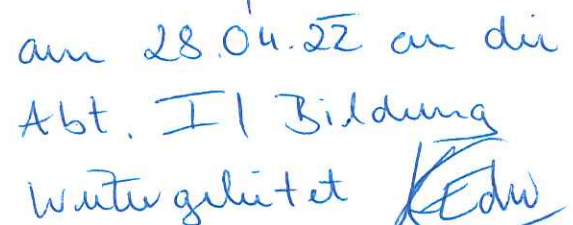 am 28.04.22 an die
Abt. II Bildung
weitergeleitet